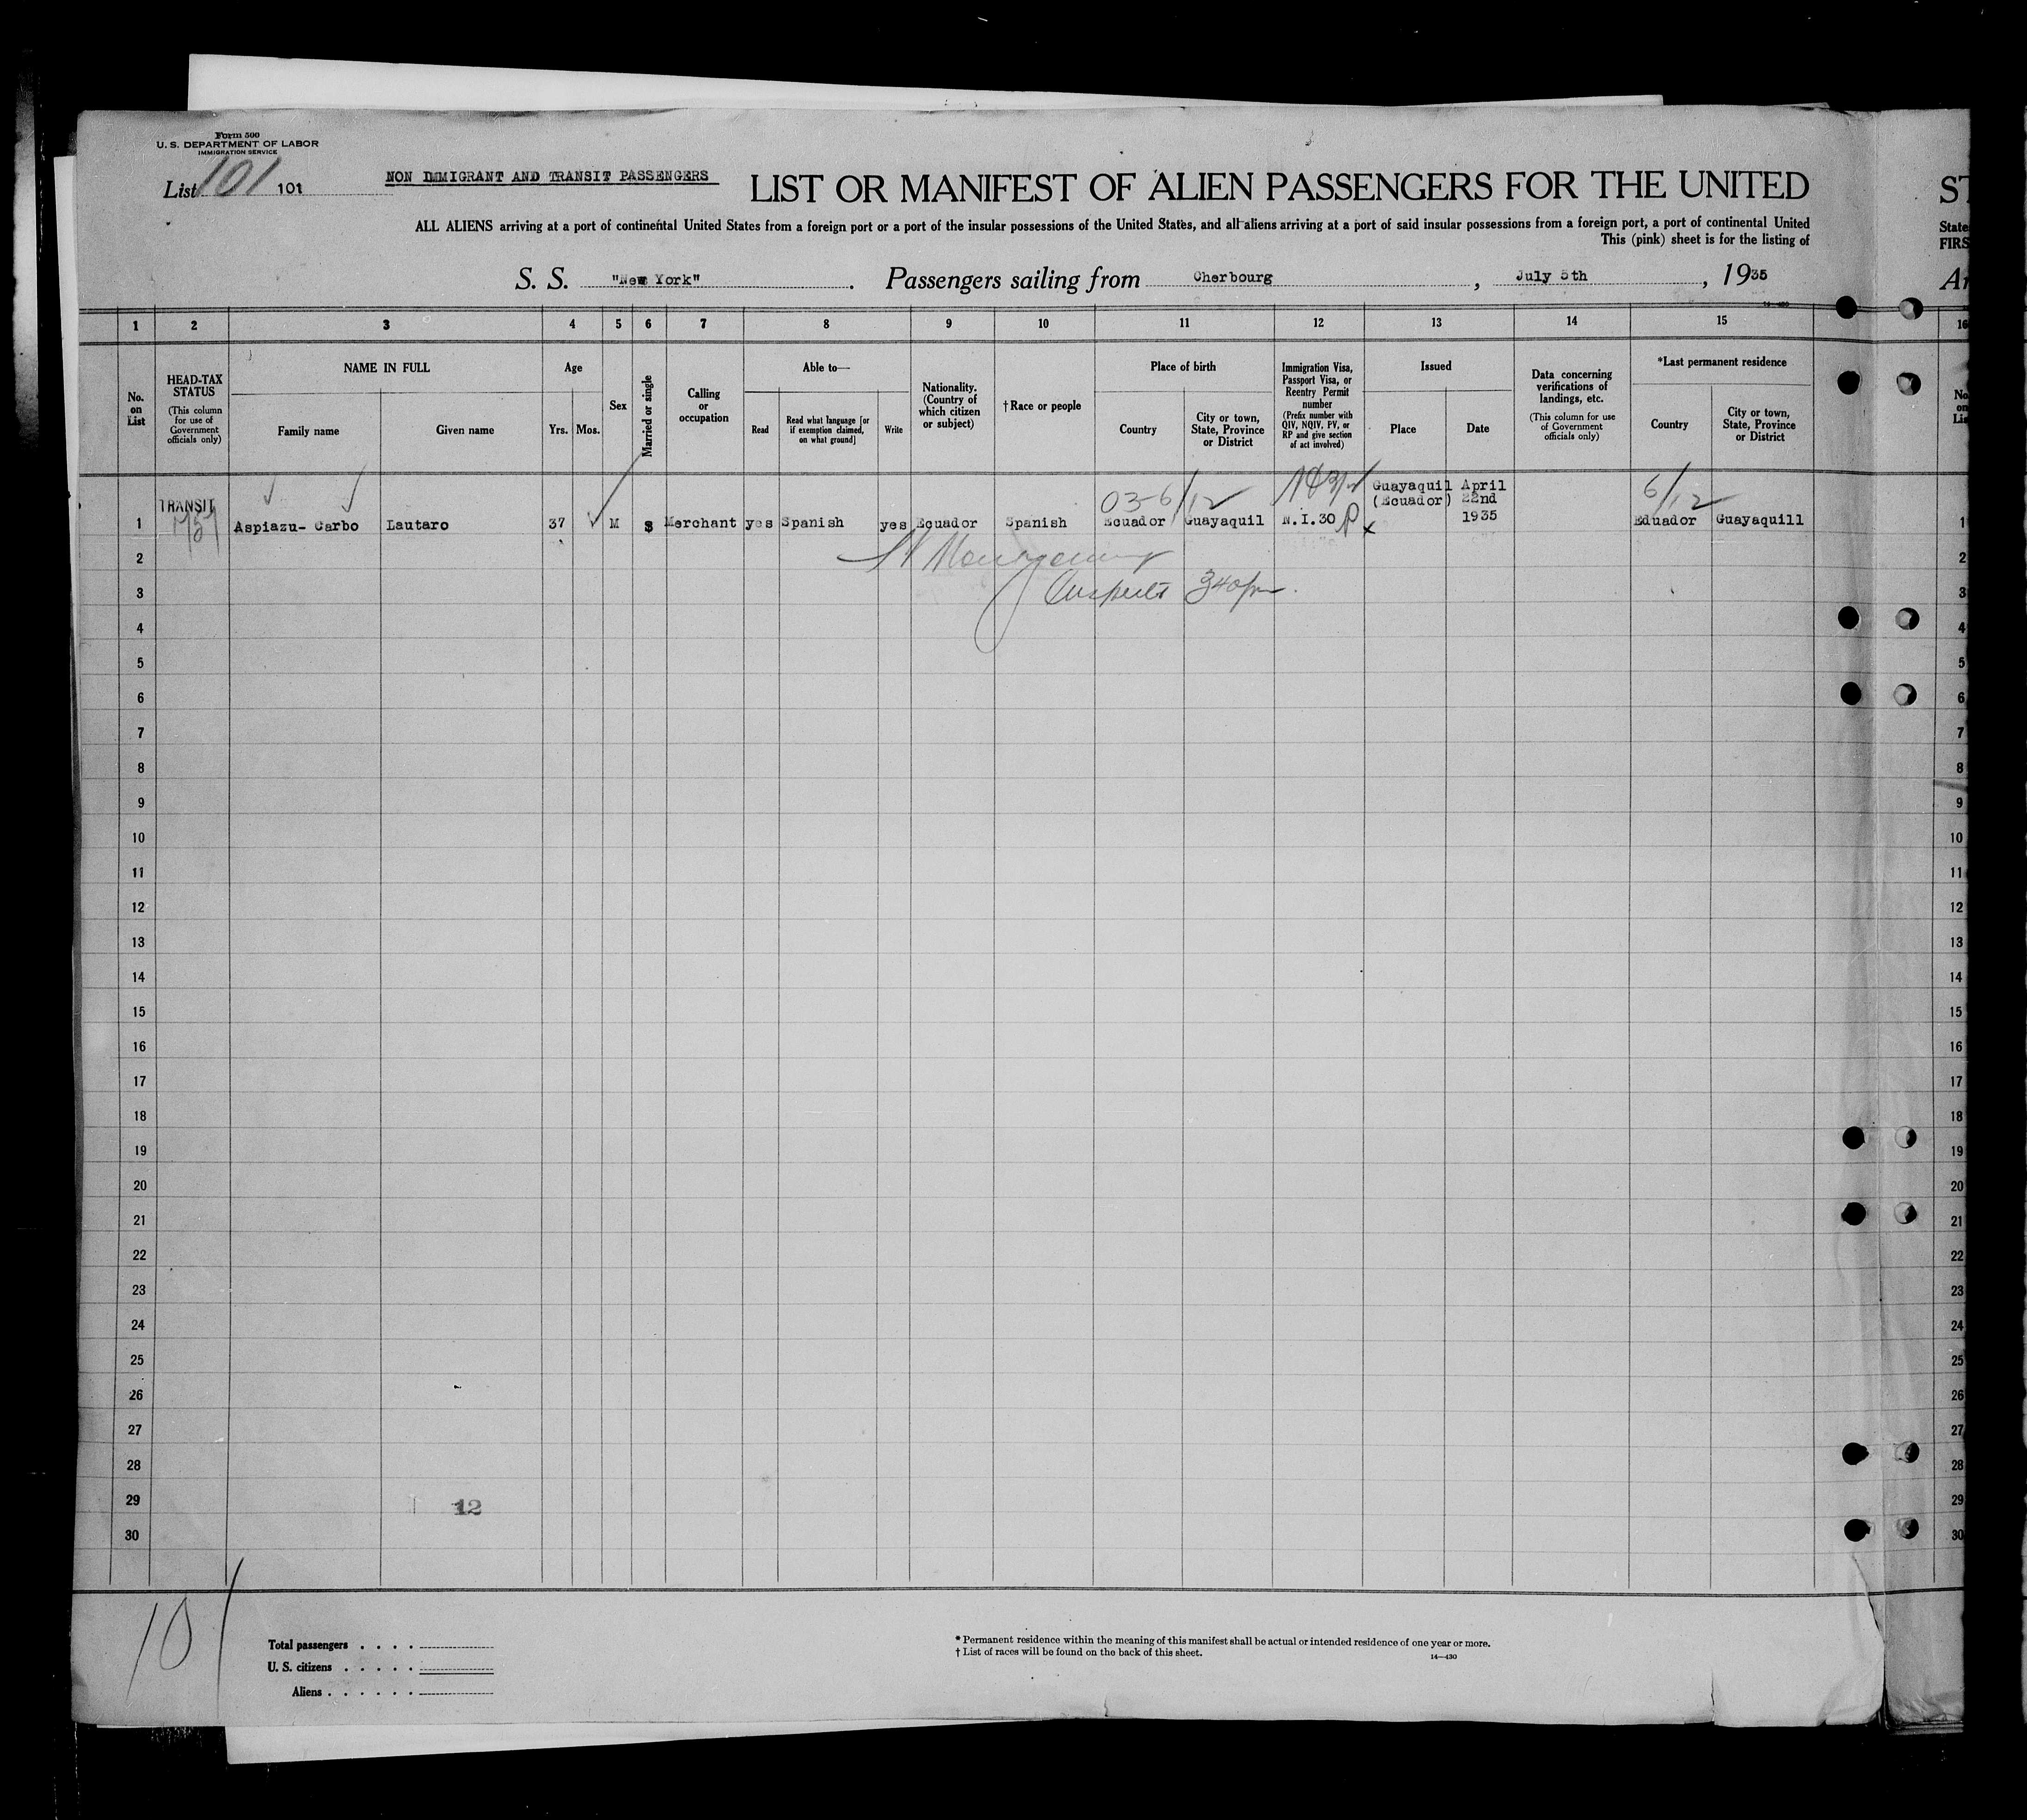 Form 500
U. S. DEPARTMENT OF LABOR
IMMIGRATION SERVICE
List 101 101
NON IMMIGRANT AND TRANSIT PASSENGERS
LIST OR MANIFEST OF ALIEN PASSENGERS FOR THE UNITED
ST
ALL ALIENS arriving at a port of continental United States from a foreign port or a port of the insular possessions of the United States, and all aliens arriving at a port of said insular possessions from a foreign port, a port of continental United
State
This (pink) sheet is for the listing of
FIRS
S. S. "New York". Passengers sailing from Cherbourg, July 5th, 1935
Ar
14—430
1 2 3 4 5 6 7 8 9 10 11 12 13 14 15 16
No. on List
HEAD-TAX STATUS
(This column for use of Government officials only)
NAME IN FULL
Family name
Given name
Age
Yrs. Mos.
Sex
Married or single
Calling or occupation
Able to—
Read
Read what language [or if exemption claimed, on what ground]
Write
Nationality. (Country of which citizen or subject)
†Race or people
Place of birth
Country
City or town, State, Province or District
Immigration Visa, Passport Visa, or Reentry Permit number
(Prefix number with QIV, NQIV, PV, or RP and give section of act involved)
Issued
Place
Date
Data concerning verifications of landings, etc.
(This column for use of Government officials only)
*Last permanent residence
Country
City or town, State, Province or District
No. on Lis
TRANSIT
03-6/12
Guayaquil April
(Ecuador) 22nd
1935
6/12
1 Aspiazu- Carbo Lautaro 37 M S Merchant yes Spanish yes Ecuador Spanish Ecuador Guayaquil N.I.30 Eduador Guayaquill 1
2 2
3 340pm 3
4 4
5 5
6 6
7 7
8 8
9 9
10 10
11 11
12 12
13 13
14 14
15 15
16 16
17 17
18 18
19 19
20 20
21 21
22 22
23 23
24 24
25 25
26 26
27 27
28 28
29 12 29
30 30
101
Total passengers . . . .
U. S. citizens . . . . .
Aliens . . . . . .
* Permanent residence within the meaning of this manifest shall be actual or intended residence of one year or more.
† List of races will be found on the back of this sheet.
14—430